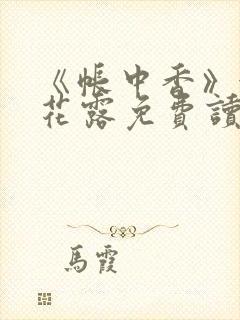 《帳中香》
花露免費讀
馬霞